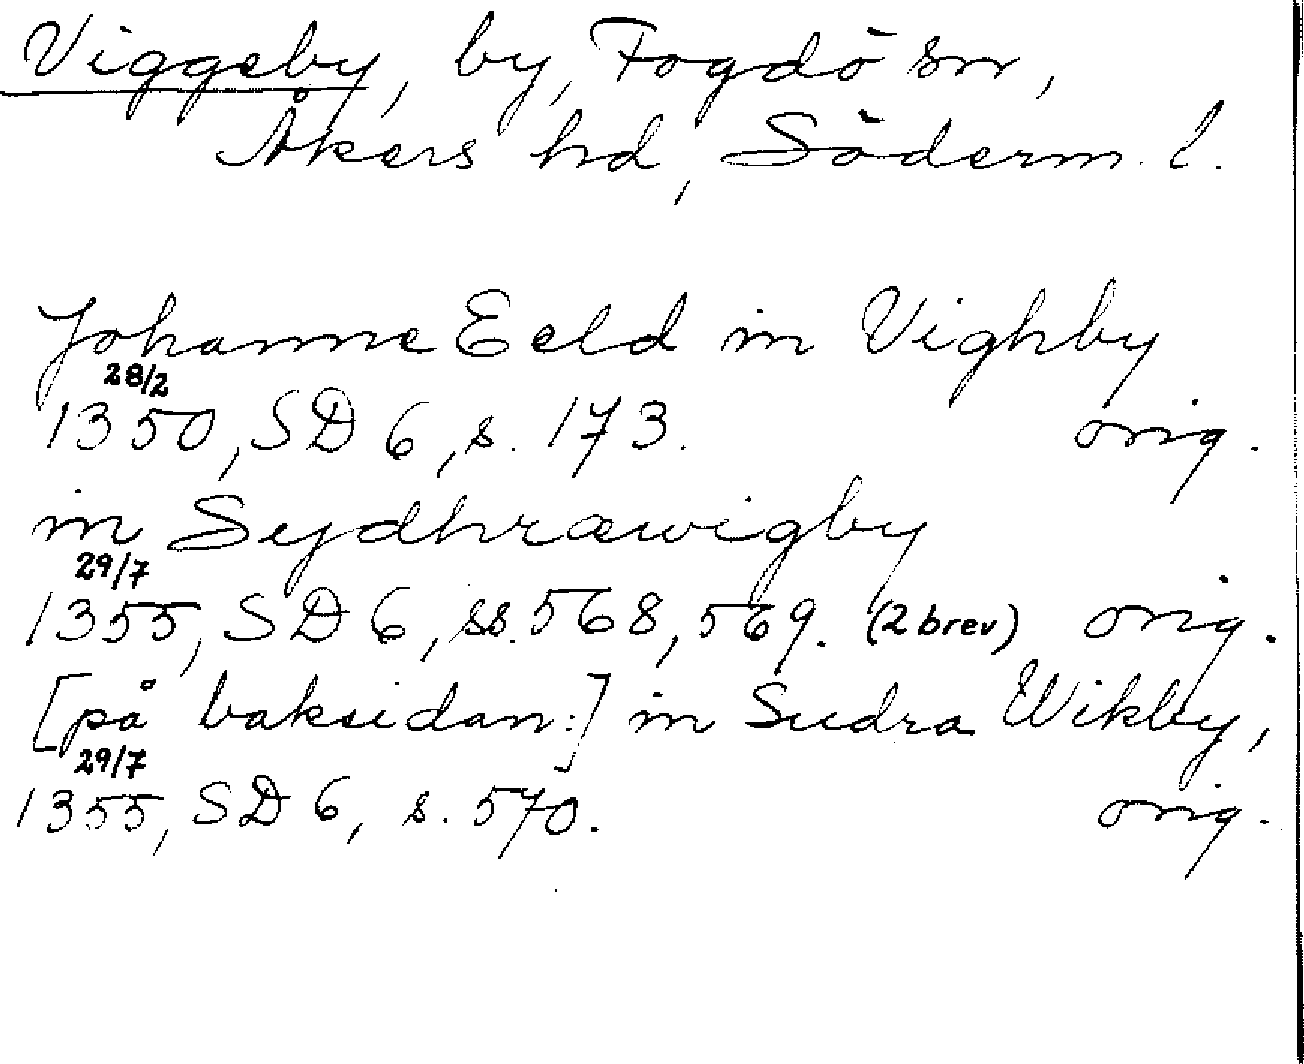 Viggeby, by, Fogdö sn,
Åkers hd, Söderm. l.
Johanne Eeld in Vighby
28/2
1350, SD 6, s. 173. orig.
in Sydhræwigby
29/7
1355, SD 6, ss. 568, 569. (2 brev) orig.
[på baksidan:] in Sudra Wikby,
29/7
1355, SD 6, s. 570. orig.